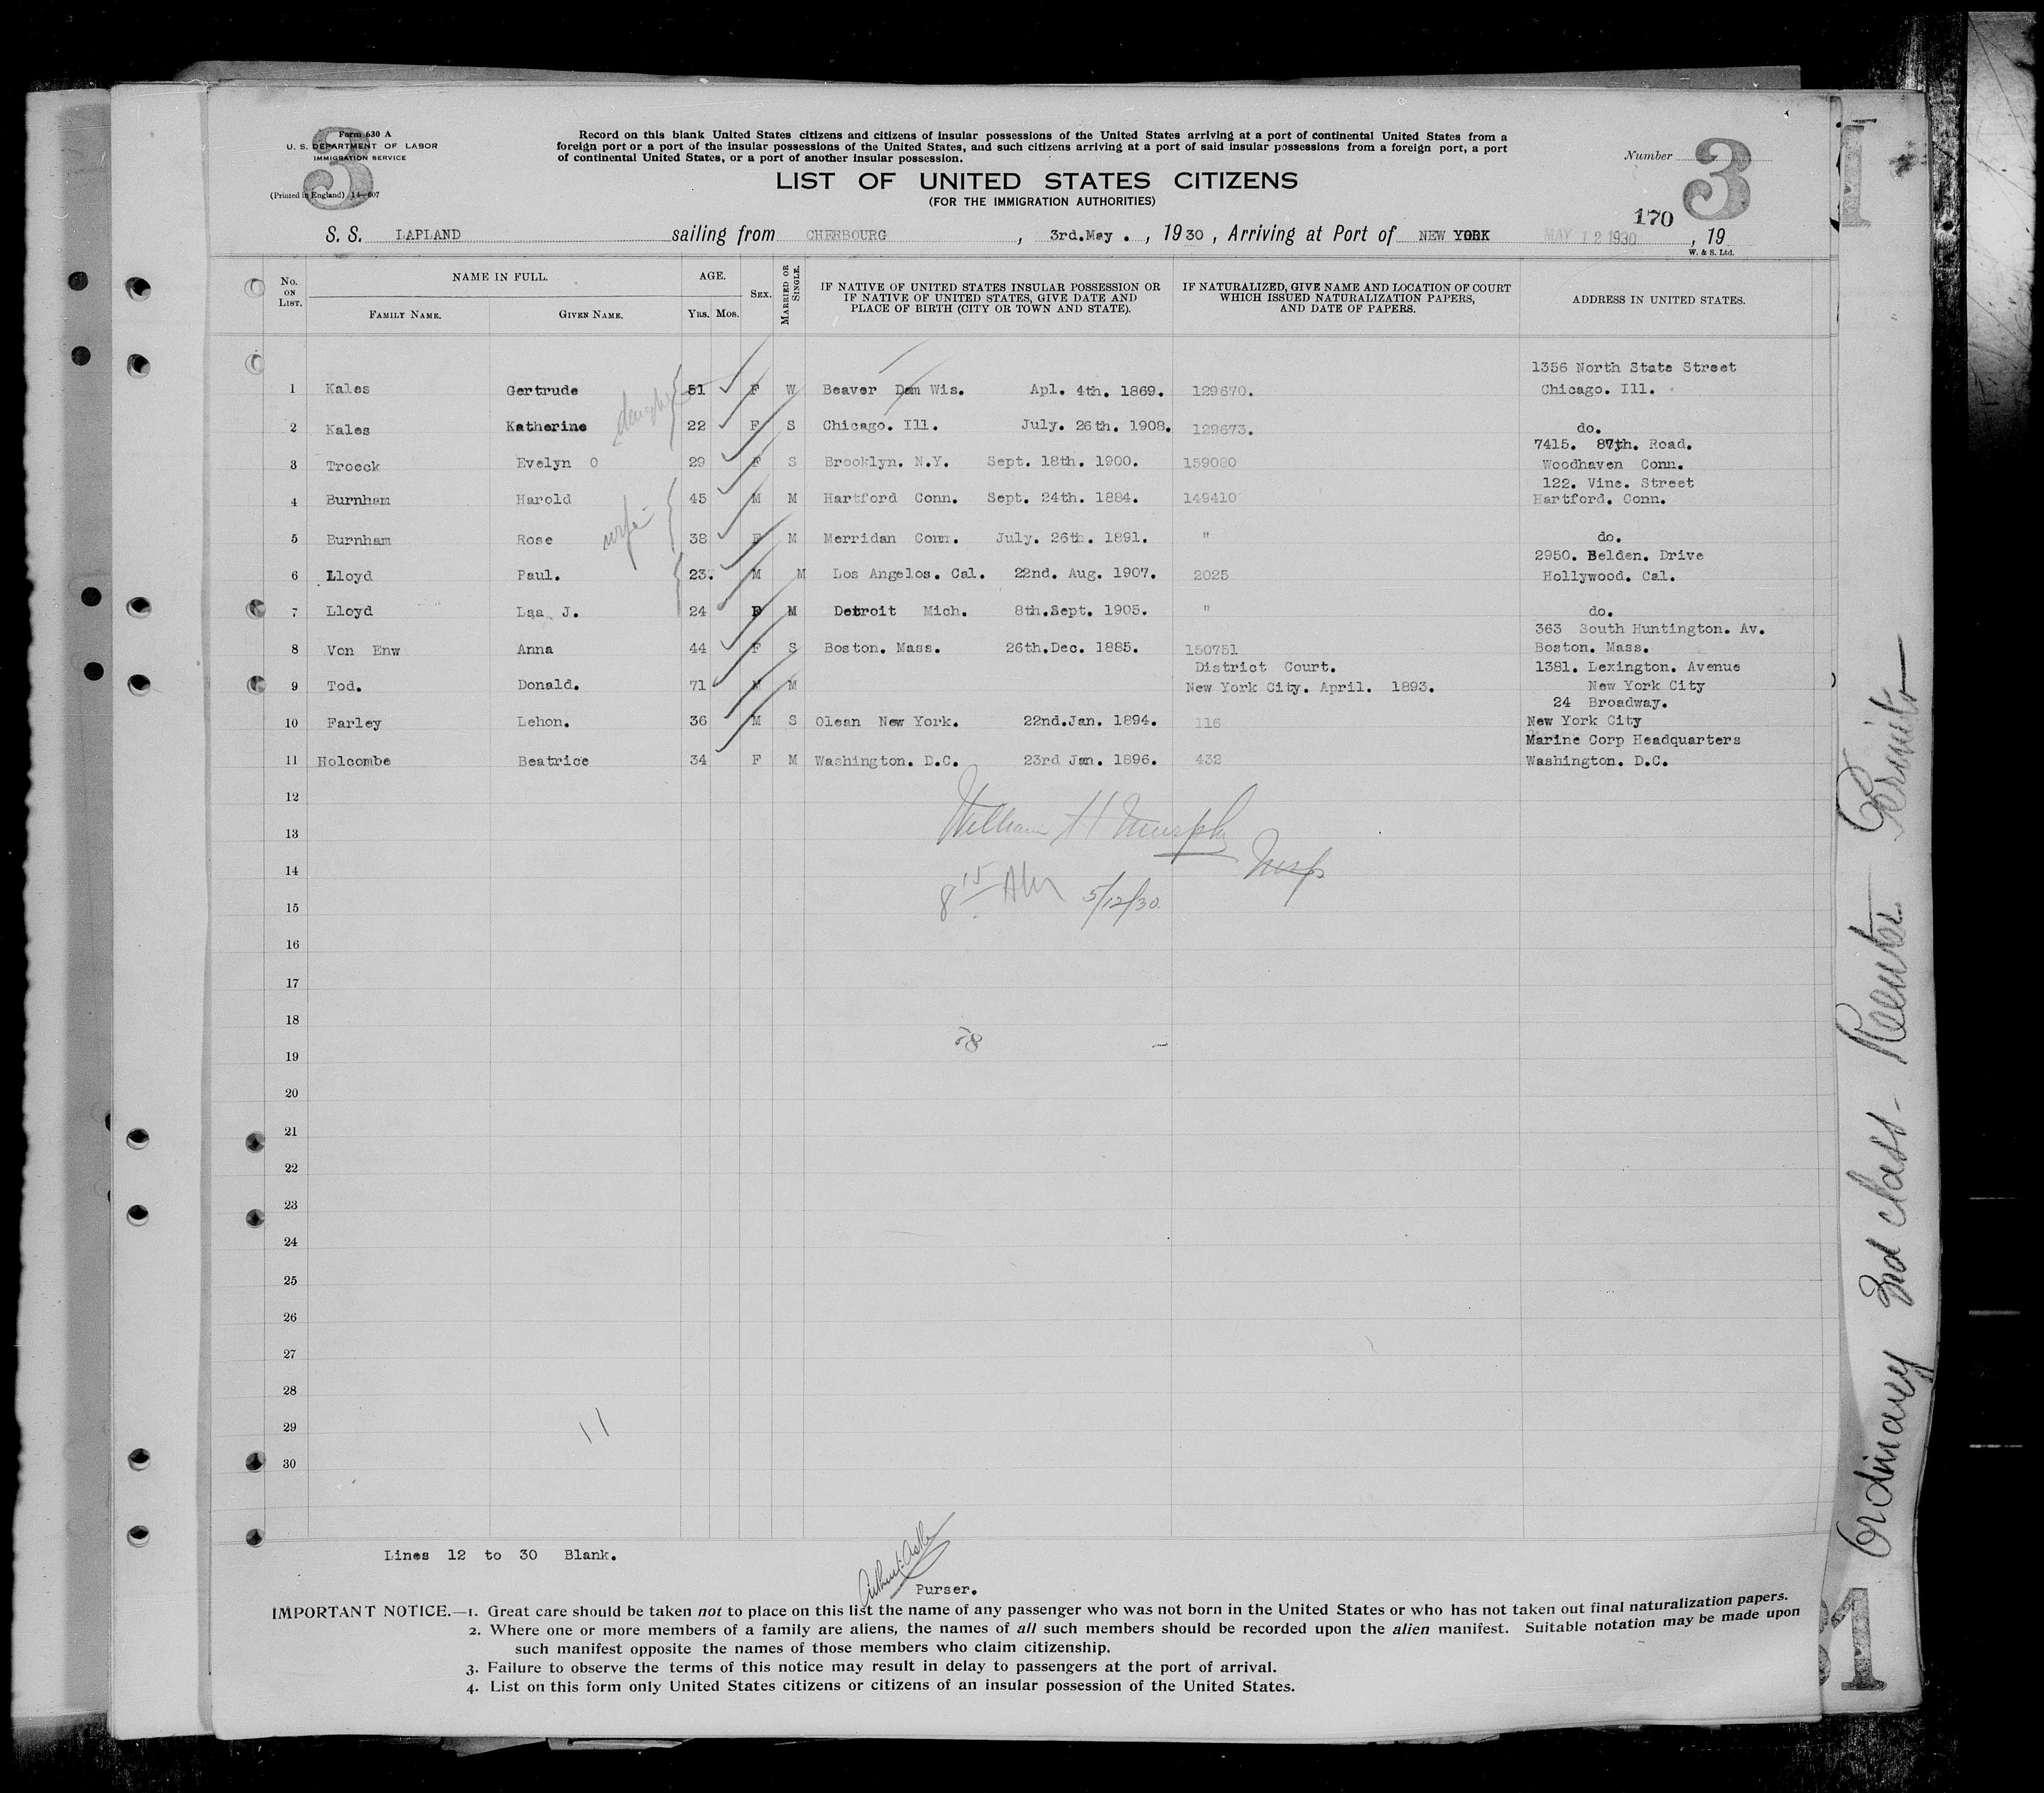 3
Form 630 A
U. S. DEPARTMENT OF LABOR
IMMIGRATION SERVICE
(Printed in England) 14—607
Record on this blank United States citizens and citizens of insular possessions of the United States arriving at a port of continental United States from a
foreign port or a port of the insular possessions of the United States, and such citizens arriving at a port of said insular possessions from a foreign port, a port
of continental United States, or a port of another insular possession.
Number 3
LIST OF UNITED STATES CITIZENS
(FOR THE IMMIGRATION AUTHORITIES)
170
S. S. LAPLAND sailing from CHERBOURG , 3rd.May . , 1930 , Arriving at Port of NEW YORK MAY 12 1930 , 19
W. & S. Ltd.
No. ON LIST. NAME IN FULL. FAMILY NAME. GIVEN NAME. AGE. Yrs. Mos. SEX. MARRIED OR SINGLE. IF NATIVE OF UNITED STATES INSULAR POSSESSION OR IF NATIVE OF UNITED STATES, GIVE DATE AND PLACE OF BIRTH (CITY OR TOWN AND STATE). IF NATURALIZED, GIVE NAME AND LOCATION OF COURT WHICH ISSUED NATURALIZATION PAPERS, AND DATE OF PAPERS. ADDRESS IN UNITED STATES.
1356 North State Street
1 Kales Gertrude 51 F W Beaver Dam Wis. Apl. 4th. 1869. 129670. Chicago. Ill.
daughter
2 Kales Katherine 22 F S Chicago. Ill. July. 26th. 1908. 129673. do.
7415. 87th. Road.
3 Troeck Evelyn O 29 F S Brooklyn. N.Y. Sept. 18th. 1900. 159080 Woodhaven Conn.
122. Vine. Street
4 Burnham Harold 45 M M Hartford Conn. Sept. 24th. 1884. 149410 Hartford. Conn.
wife
5 Burnham Rose 38 F M Merridan Conn. July. 26th. 1891. " do.
2950. Belden. Drive
6 Lloyd Paul. 23. M M Los Angelos. Cal. 22nd. Aug. 1907. 2025 Hollywood. Cal.
7 Lloyd Laa J. 24 F M Detroit Mich. 8th.Sept. 1905. " do.
363 South Huntington. Av.
8 Von Enw Anna 44 F S Boston. Mass. 26th.Dec. 1885. 150751 Boston. Mass.
District Court. 1381. Lexington. Avenue
9 Tod. Donald. 71 M M New York City. April. 1893. New York City
24 Broadway.
10 Farley Lehon. 36 M S Olean New York. 22nd.Jan. 1894. 116 New York City
Marine Corp Headquarters
11 Holcombe Beatrice 34 F M Washington. D.C. 23rd Jan. 1896. 432 Washington. D.C.
12
13 William H Murphy
14 Insp
15 8 15 AM 5/12/30
16
17
18
19 78
20
21
22
23
24
25
26
27
28
29 11
30
Lines 12 to 30 Blank.
Purser.
IMPORTANT NOTICE.—1. Great care should be taken not to place on this list the name of any passenger who was not born in the United States or who has not taken out final naturalization papers.
2. Where one or more members of a family are aliens, the names of all such members should be recorded upon the alien manifest. Suitable notation may be made upon
such manifest opposite the names of those members who claim citizenship.
3. Failure to observe the terms of this notice may result in delay to passengers at the port of arrival.
4. List on this form only United States citizens or citizens of an insular possession of the United States.
Ordinary 3rd class - Reenter Permits